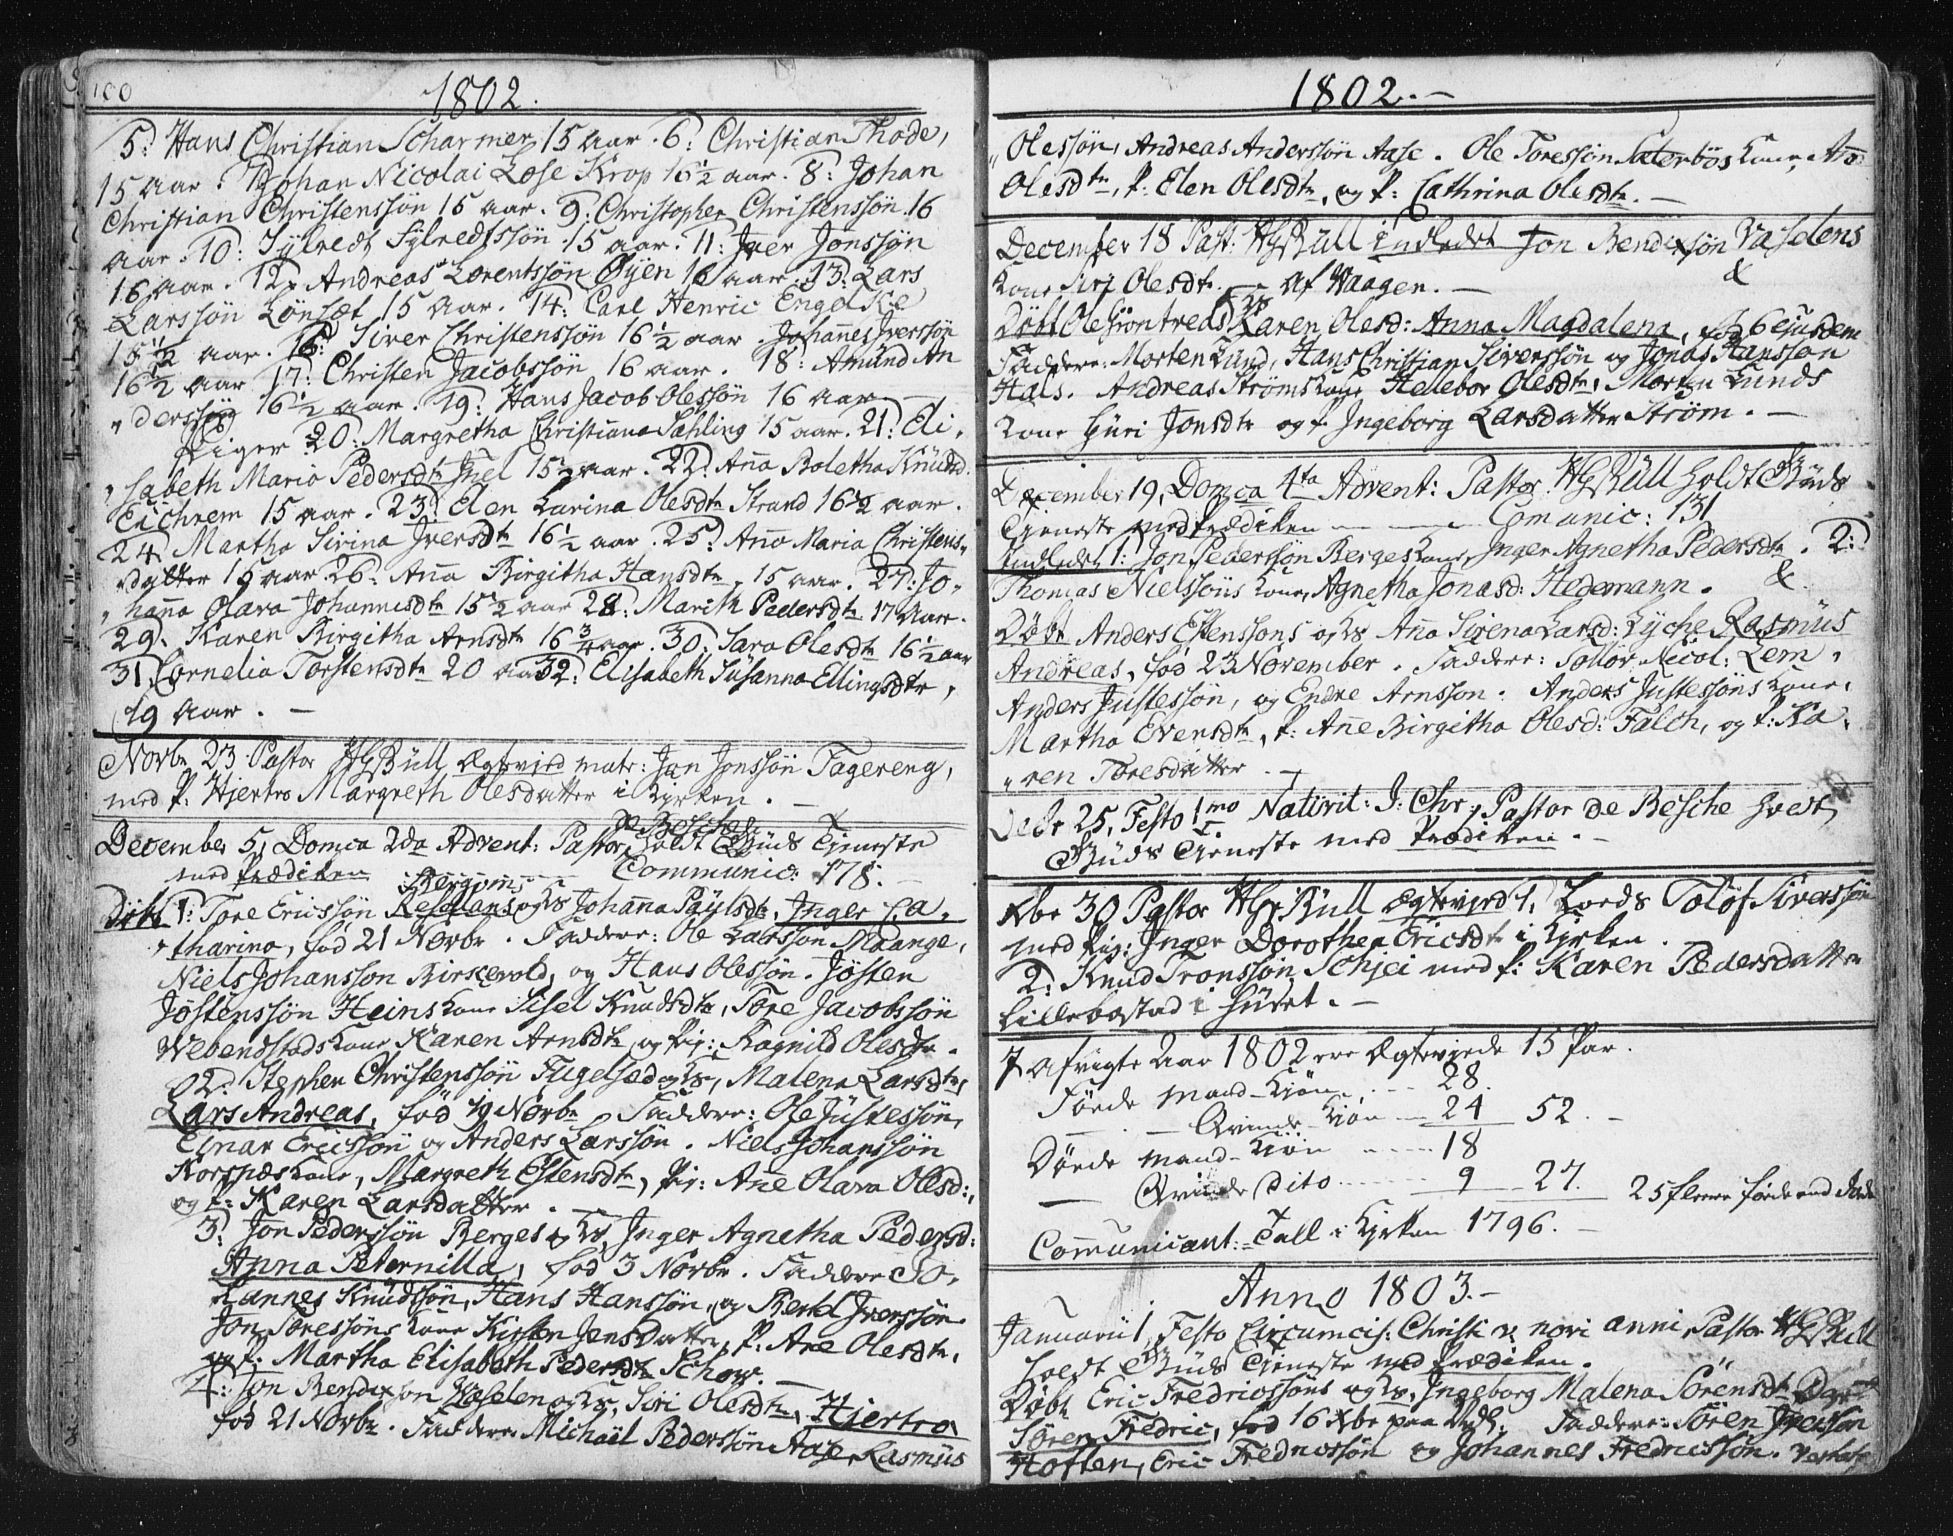 100
1802.
5: Hans Christian Scharmer 15 aar. 6: Christian Thode,
15 aar. 7: Johan Nicolai Lose Krop 16½ aar. 8: Johan
Christian Christenssøn 15 aar. 9: Christopher Christenssøn 16
aar. 10: Sylvedt Sylvedtssøn 15 aar. 11: Iver Jonssøn
16 aar. 12: Andreas Lorentssøn Øyen 16 aar. 13: Lars
Larssøn Lønsæt 15 aar. 14: Carl Henric Engelke
15½ aar. 15: Siver Christenssøn 16½ aar. Johanes Iverssøn
16½ aar 17: Christen Jacobssøn 16 aar. 18: Amund An
derssøn 16½ aar. 19: Hans Jacob Olessøn 16 aar.
Piger 20: Margretha Christiana Sahling 15 aar. 21: Eli,
sabeth Maria Pedersdtr Juel 15½ aar. 22: Ana Boletha Knudsd.
Eichrem 15 aar. 23: Elen Larina Olesdtr Strand 16½ aar.
24: Martha Sirina Iversdtr 16½ aar. 25: Ana Maria Christens,
datter 15 aar 26: Ana Birgitha Hansdtr 15 aar. 27: Jo,
hanna Olava Johannisdtr 15½ aar 28: Marith Pedersdtr 17 Aar.
29. Karen Birgitha Arnsdtr 16¾ aar. 30: Sara Olesdtr 16½ aar
31. Cornelia Torstensdtr 20 aar 32: Elisabeth Susanna Ellingsdtr,
19 Aar. –
Novbr 23 Pastor HGBüll Ægtevied matr: Jon Jonssøn Fagereng,
med P: Hjertro Margreth Olesdatter i Kirken. –
December 5, Domca 2da Advent: Pastor de Besche holdt Guds Tieneste
med Prædiken Communic: 178.
Døbt 1: Tore Ericssøn Bergum Resplans og Hs Johana Paulsdt, Inger Ca,
tharina, fød 21 Novbr. Faddere: Ole Larssøn Maange,
Niels Johanssøn Birkevold, og Hans Olessøn. Jøsten
Jøstenssøn Heins Kone Sisel Knudsdtr, Tore Jacobssøn
Webenstads Kone Karen Arnsdtr og Pig: Ragnild Olesdtr.
2: Stephen Christenssøn Fugelsæd og Hs, Malena Larsdtr,
Lars Andreas, fød 19 Novbr. Faddere: Ole Justessøn,
Einar Ericssøn og Anders Larssøn. Niels Johanssøn
Korsnæs Kone, Margreth Estensdtr, Pig: Ane Olava Olesd:,
og P: Karen Larsdatter.
3: Jon Pederssøn Berges og Hs, Inger Agnetha Pedersd:
Anna Peternilla, fød 3 Novbr. Faddere Jo,
hannes Knudssøn, Hans Hanssøn, og Bertel Iverssøn
Jon Toressøns Kone Kirsten Jensdatter, P: Ane Olesdtr,
og P: Martha Elisabeth Pedersdtr Schow. –
4: Jon Bendixson Vaselen og Hs, Siri Olesdtr, Hjertro
fød 21 Novbr. Faddere Michaël Pederssøn Aase, Rasmus
1802. –
Olessøn, Andreas Anderssøn Aase. Ole Toressøn Saterbøs Kone, Ana
Olesdtr, P: Elen Olesdtr, og P: Cathrina Olesdtr. –
December 18 Past: HGBüll indledet Jon Bendixsøn Vaselens
Kone Siri Olesdtr. – af Waagen. – &
Døbt Ole Grøntreds og Hs Karen Olesd: Anna Magdalena, fød 6 ejusdem
Faddere: Morten Lund, Hans Christian Siverssøn og Jonas Hanssøn
Hals. Andreas Strøms Kone Hellebor Olesdtr, Morten Lunds
Kone Guri Jonsdtr og P. Ingeborg Larsdatter Strøm. –
December 19, Domca 4ta Advent: Pastor HGBüll holdt Guds
Tieneste med Prædiken – Comunic: 131
Indledet 1: Jon Pederssøn Berges Kone, Inger Agnetha Pedersdtr. 2:
Thomas Nielssøns Kone, Agnetha Jonasd: Hedemann. &
Døbt Anders Estenssøns og Hs Ana Sirena Larsd: Lyche Rasmus
Andreas, fød 23 November. Faddere: Sollov. Nicol: Lem,
Anders Justessøn, og Endre Arnssøn. Anders Justessøns Kone,
Martha Evensdtr, P: Ane Birgitha Olesd: Falch, og P: Ka,
ren Toresdatter. –
Decbr 25, Festo 1mo Nativit: J: Chr:, Pastor de Besche holdt
Guds Tieneste med Prædiken. –
Xbr 30 Pastor HGBüll Ægtevied 1, Lords Toløf Siverssøn
med Pig: Inger Dorothea Ericsdtr i Kirken.
2: Knud Tronssøn Schjei med P: Karen Pedersdatter
Lillebostad i Huset. –
I afvigte Aar 1802 ere Ægteviede 15 Par.
Fødde Mand-Kiøn – 28.
– – Qvinde-Kiøn – 24 52. –
Døde Mand-Kiøn – 18
– Qvinde dito – 9 – 27. 25 flere fødde end døde
Communicant:-Tall i Kirken 1796. –
Anno 1803. –
Januarii 1, Festo Circumcis: Christi v. novi anni, Pastor HGBüll
holdt Guds Tieneste med Prædiken.
Døbt Eric Fredricssøns og Hs, Ingeborg Malena Sørensdtr
Søren Fredric, fød 16 Xbr paa Vads. Faddere: Søren Iverssøn
Hoften, Eric Fredricssøn og Johannes Fredricssøn.